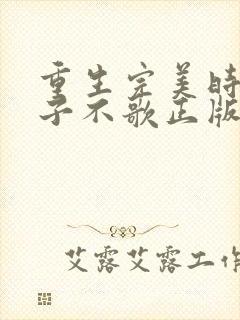 重生完美时
子不歌正版
艾露艾露工作